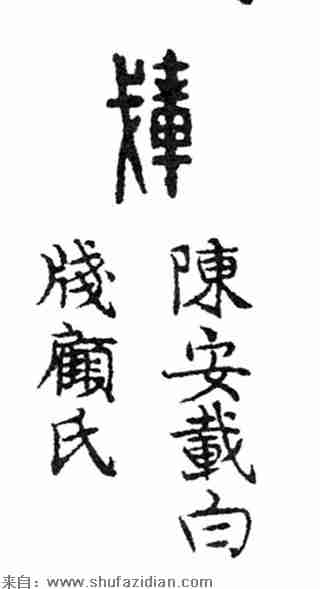 陳安載白
牋顧氏
来自：www.shufazidian.com